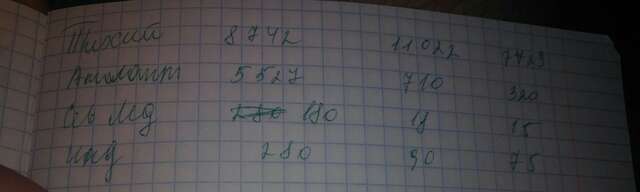 Тихий 8742 11022 7423
Атлант 5527 710 320
Сев Лед 280 180 18 15
Инд 280 90 75